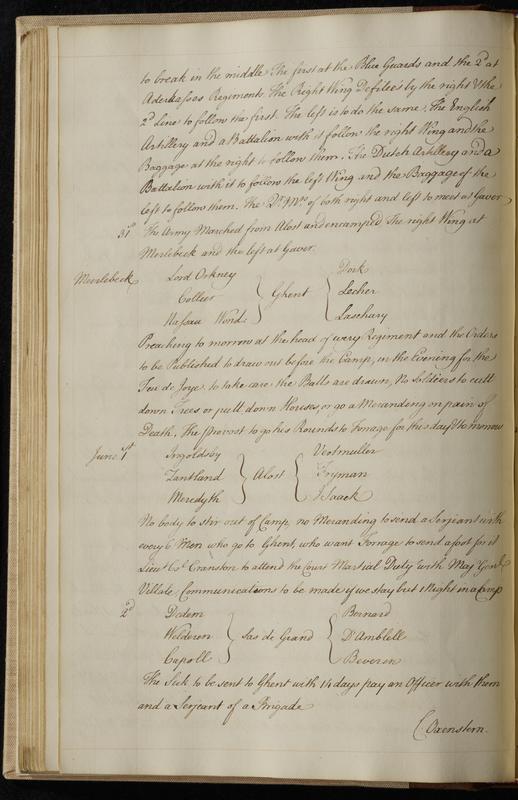 to break in the middle. The first at the Blue Guards and the 2d at
Regiments. The Right Wing Defilees by the right & the
2d Line to follow the first. The left is to do the same. The English
Artillery and a Battalion with it follow the right Wing and the
Baggage at the right to follow them. The Dutch Artillery and a
Battalion with it to follow the left Wing and the Baggage of the
left to follow them. The of both right and left to meet at Gaver
31st The Army Marched from Alost and encamped the right Wing at
Merlebeck and the left at Gaver.
Meerlebeck Lord Orkney Dork
Collier } Ghent { Locher
Nassau Woud: Laschary
Preaching to morrow at the head of every Regiment and the Orders
to be Published to draw out before the Camp, in the Evening for the
Feu de Joye. to take care the Balls are drawn, No Soldiers to cutt
down Trees or pull down Houses, or go a Meranding on pain of
Death, The Provost to go his Rounds to Forrage for this day & to morrow
June 1st Ingoldsby Vertmuller
Zantland } Alost { Fryman
Meredyth Isaack
No body to stir out of Camp, no Meranding to send a Serjeant with
every 6 Men who go to Ghent, who want Forrage to send afoot for it
Lieut Col Cranston to attend the Court Martial Duty with Maj Genl
Villate, Communications to be made if we stay but 1 Night in a Camp
2d Dedem Bernard
Welderen } Sas de Gand { D'Amblell
Capoll Beveren
The Sick to be sent to Ghent with 14 days pay an Officer with them
and a Serjeant of a Brigade
C Oxenstern.